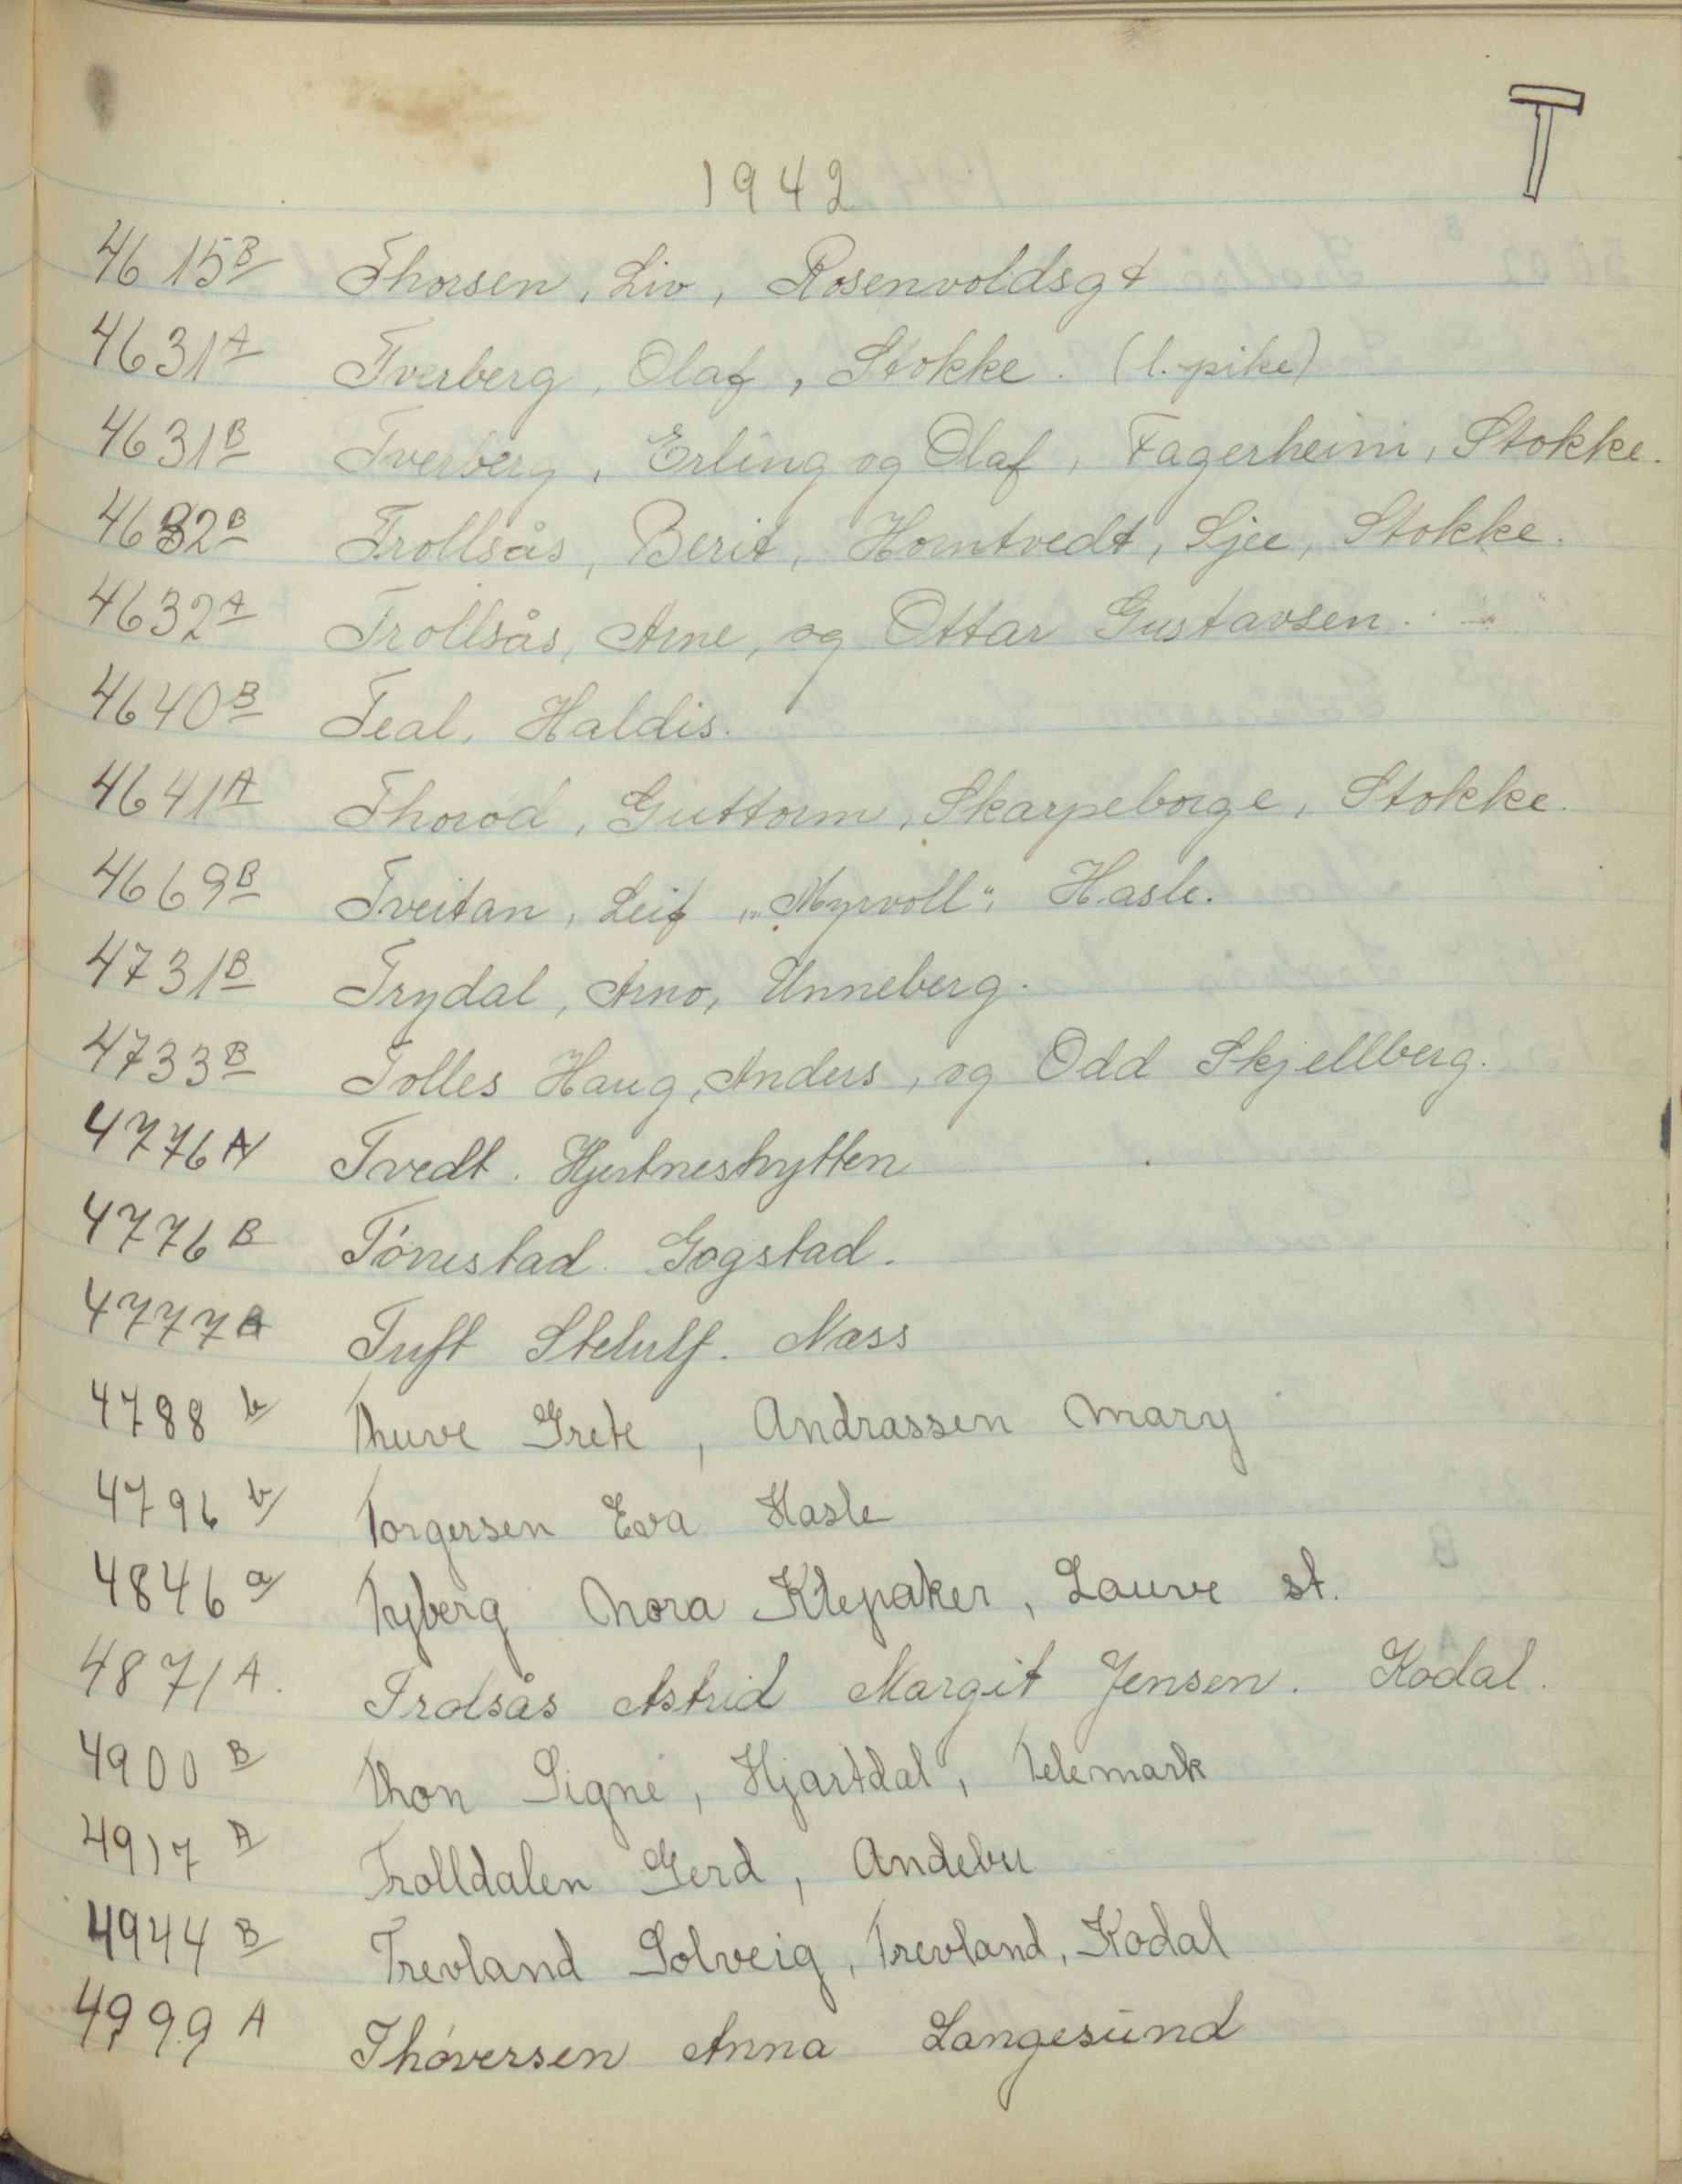 T
1942
4615B Thorsen, Liv, Rosenvoldsgt
4631A Tverberg, Olaf, Stokke. (l. pike)
4631B Tverberg, Erling og Olaf, Fagerheim, Stokke.
4632B Trollsås, Berit, Homtvedt, Sjee, Stokke.
4632A Trollsås, Arne, og Ottar Gustavsen.
4640B Teal, Haldis.
4641A Thorod, Guttorm, Skarpeborge, Stokke.
4669B Tveitan, Leif „Myrvoll“, Hasle.
4731B Trydal, Arno, Unneberg.
4733B Tolles Haug, Anders, og Odd Skjellberg.
4776A Tvedt. Hjertneshytten
4776B Tönnestad. Gogstad.
4777 Tuft Stelulf. Næss
4788 b Thuve Grete, Andrassen Mary
4796 b Torgersen Eva Hasle
4846 a Tyberg Nora Klepaker, Lauve st.
4871 A. Trolsås Astrid Margit Jensen. Kodal.
4900 B Thon Signe, Hjartdal, Telemark
4917 A Trolldalen Gerd, Andebu
4944 B Trevland Solveig, Trevland, Kodal
4999 A Thöversen Anna Langesund